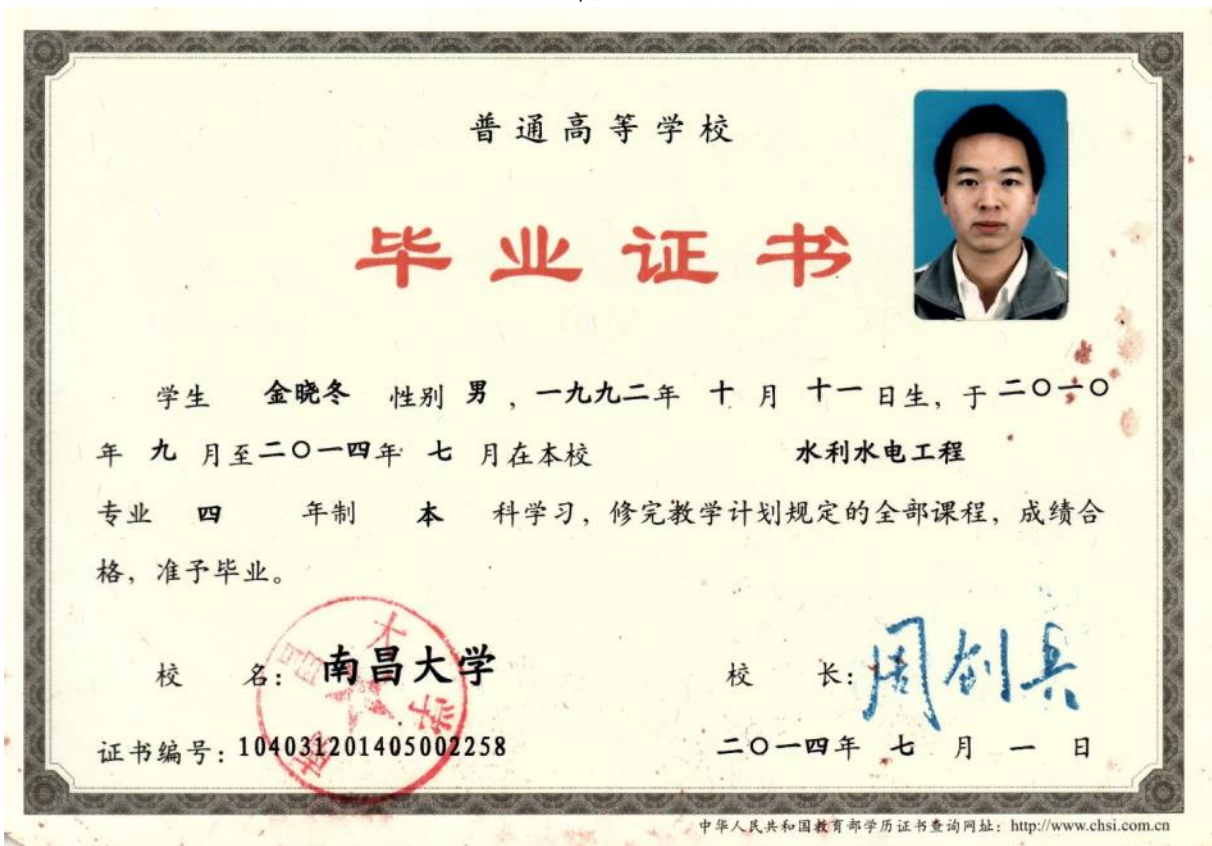 普通高等学校
毕业证书
学生 金晓冬 性别 男 ，一九九二年 十 月 十一 日生，于二〇一〇
年 九 月至二〇一四年 七 月在本校 水利水电工程
专业 四 年制 本 科学习，修完教学计划规定的全部课程，成绩合
格，准予毕业。
校 名：南昌大学 校 长：周创兵
南昌大学
证书编号：104031201405002258 二〇一四年 七 月 一 日
中华人民共和国教育部学历证书查询网址：http://www.chsi.com.cn